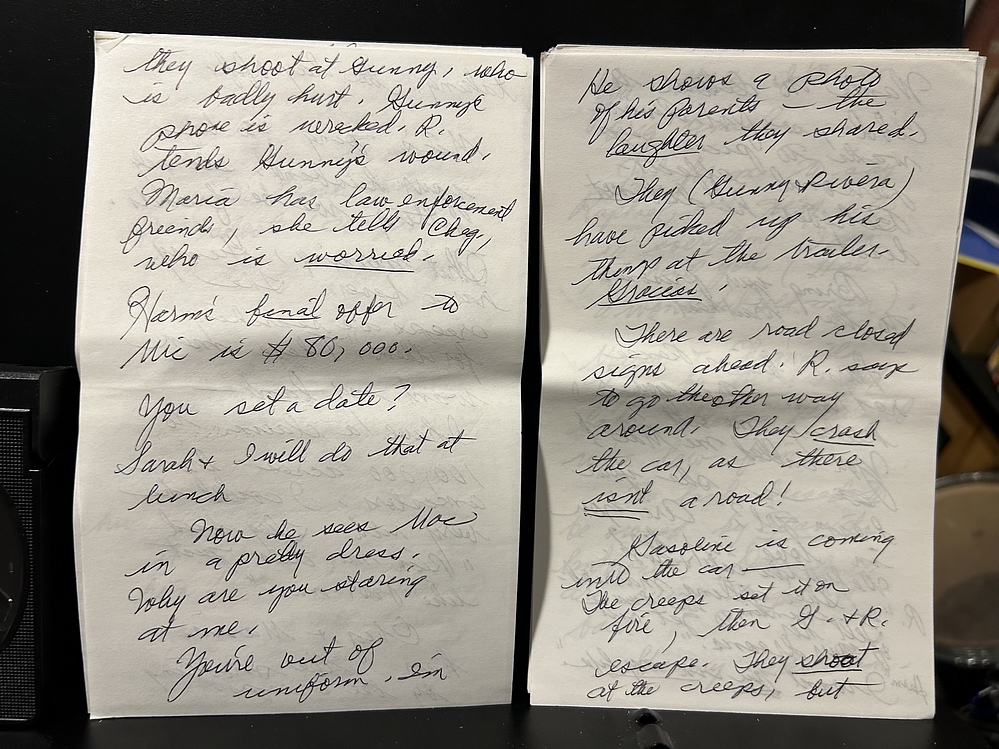 they shoot at Gunny, who
is badly hurt. Gunny's
phone is wrecked. R.
tends Gunny's wound.
Maria has law enforcement
friends, she tells Cheg,
who is worried.
Harm's final offer to
Mic is $80,000.
You set a date?
Sarah + I will do that at
lunch
Now he sees Mac
in a pretty dress.
Why are you staring
at me.
You're out of
uniform. I'm
He shows a photo
of his parents — the
laughter they shared.
They (Gunny + Rivera)
have picked up his
things at the trailer.
Gracias.
There are road closed
signs ahead. R. says
to go the other way
around. They crash
the car, as there
isn't a road!
Gasoline is coming
into the car —
The creeps set it on
fire, then G. + R.
escape. They shoot
at the creeps, but